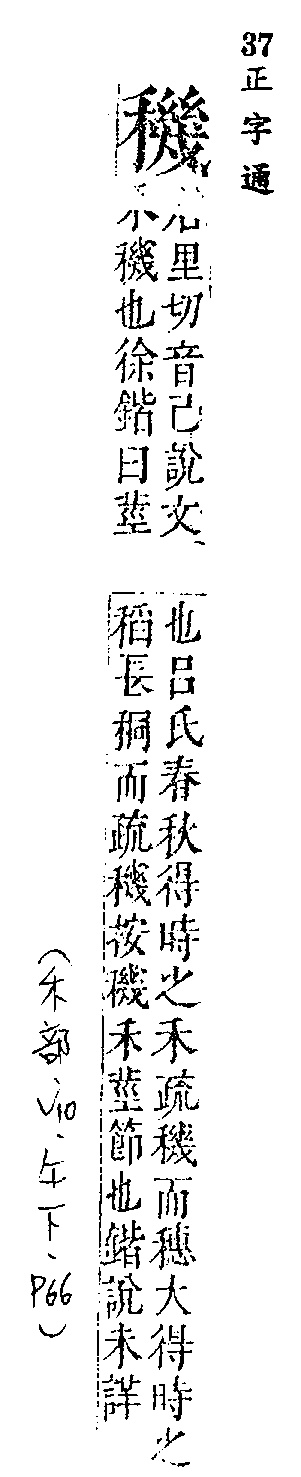 37正字通
穖
居里切音己說文
禾穖也徐鍇曰莖
也呂氏春秋得時之禾疏穖而穗大得時之
稻長稠而疏穖按穖禾莖節也鍇說未詳
(禾部、V10、午下、P66)